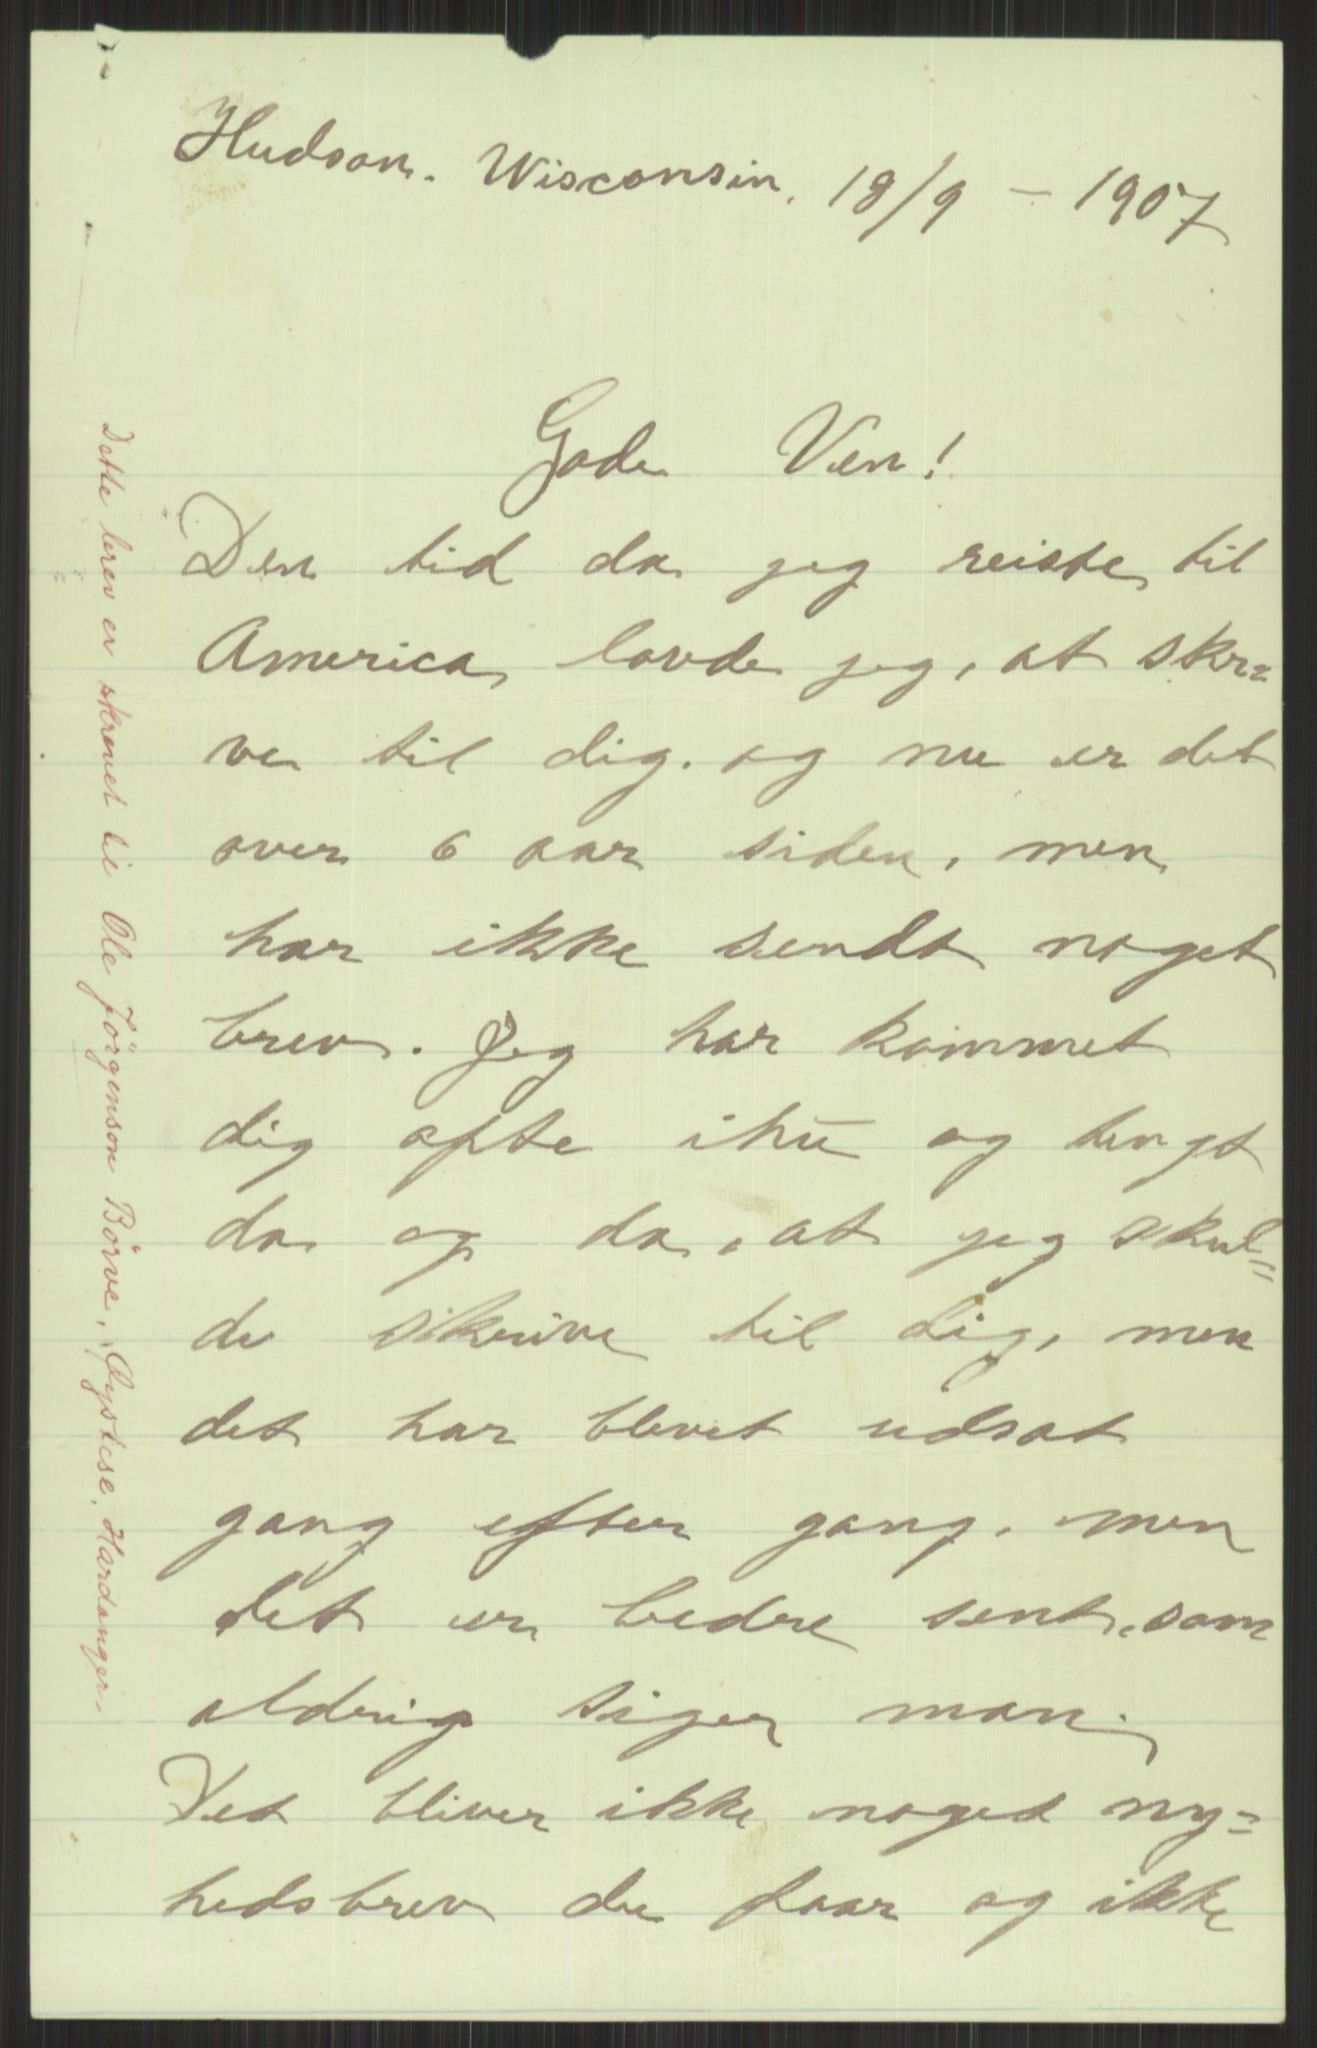 Hudson. Wisconsin. 18/9 – 1907
Gode Ven!
Den tid da jeg reiste til
America lovde jeg, at skri=
ve til dig. og nu er det
over 6 aar siden, men
har ikke sendt noget
brev. Jeg har kommet
dig ofte ihū og tengt
da og da, at jeg skul=
de skrive til dig, men
det har blevet udsat
gang efter gang. men
det er bedre sent, som
aldrig siger man.
Det bliver ikke noget ny=
hedsbrev du faar og ikke
Dette brev er skrevet til Ole Jörgenson Börve, Øystese, Hardanger.